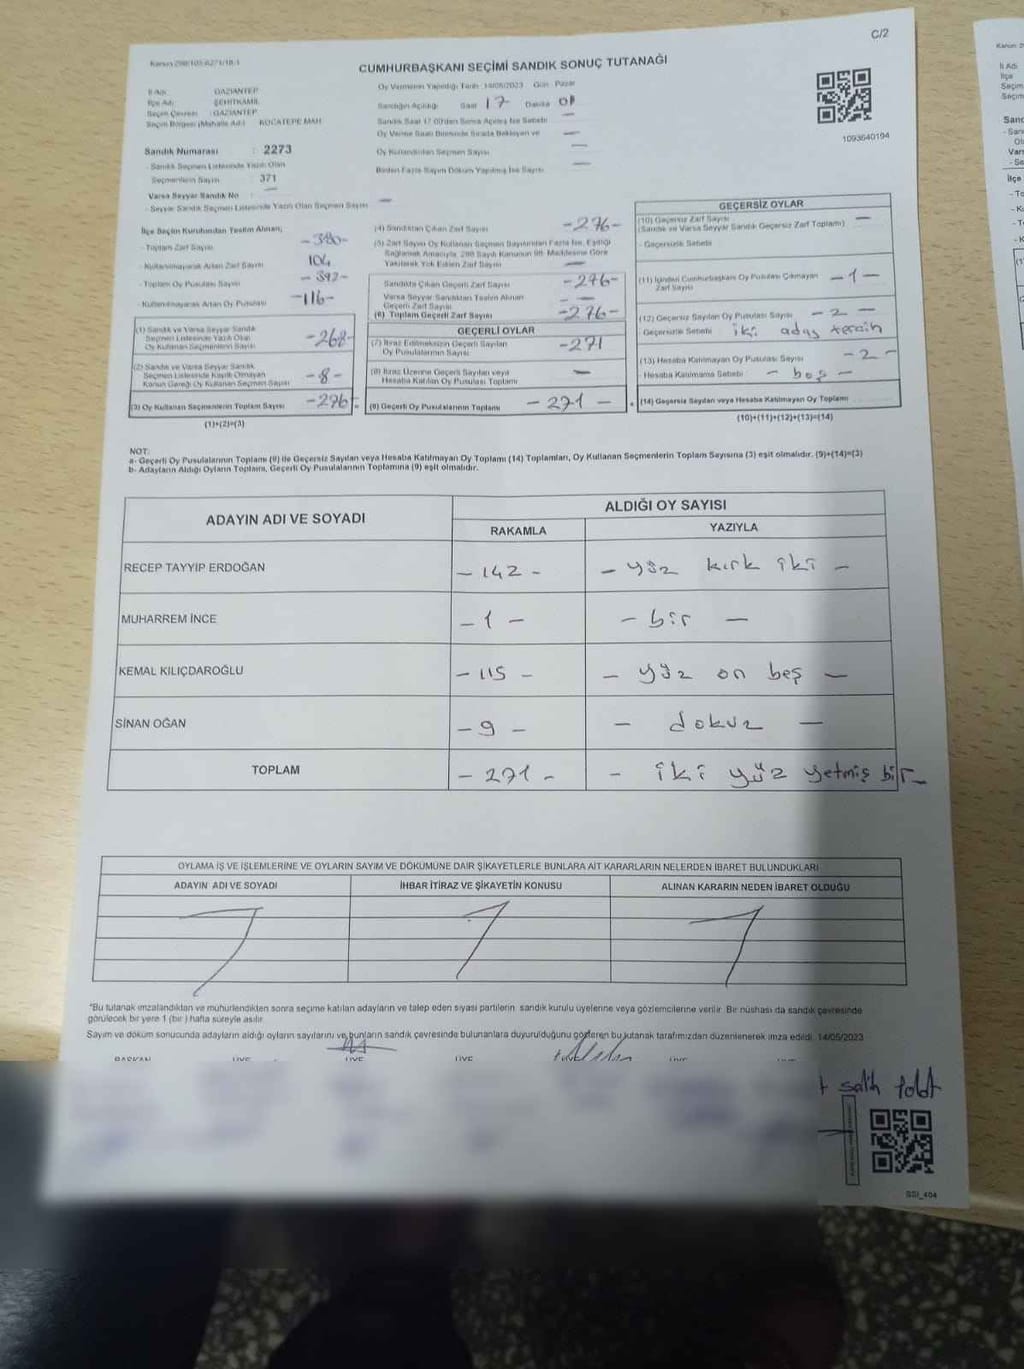 C/2
Kanun 298/105-6271/18-1
CUMHURBAŞKANI SEÇİMİ SANDIK SONUÇ TUTANAĞI
İli Adı : GAZİANTEP
İlçe Adı : ŞEHİTKAMİL
Seçim Çevresi : GAZİANTEP
Seçim Bölgesi (Mahalle Adı) : KOCATEPE MAH
Sandık Numarası : 2273
- Sandık Seçmen Listesinde Yazılı Olan
Seçmenlerin Sayısı 371
Varsa Seyyar Sandık No :
- Seyyar Sandık Seçmen Listesinde Yazılı Olan Seçmen Sayısı —
Oy Vermenin Yapıldığı Tarih : 14/05/2023 Gün : Pazar
Sandığın Açıldığı Saat 17 Dakika 01
Sandık Saat 17.00'den Sonra Açılmış İse Sebebi —
Oy Verme Saati Bitiminde Sırada Bekleyen ve —
Oy Kullandırılan Seçmen Sayısı —
Birden Fazla Sayım Döküm Yapılmış İse Sayısı —
1093640194
İlçe Seçim Kurulundan Teslim Alınan;
- Toplam Zarf Sayısı -380-
- Kullanılmayarak Artan Zarf Sayısı 104
- Toplam Oy Pusulası Sayısı -392-
- Kullanılmayarak Artan Oy Pusulası -116-
(1) Sandık ve Varsa Seyyar Sandık
Seçmen Listesinde Yazılı Olan
Oy Kullanan Seçmenlerin Sayısı -268-
(2) Sandık ve Varsa Seyyar Sandık
Seçmen Listesinde Kayıtlı Olmayan
Kanun Gereği Oy Kullanan Seçmen Sayısı -8-
(3) Oy Kullanan Seçmenlerin Toplam Sayısı -276-
(1)+(2)=(3)
(4) Sandıktan Çıkan Zarf Sayısı -276-
(5) Zarf Sayısı Oy Kullanan Seçmen Sayısından Fazla İse, Eşitliği
Sağlamak Amacıyla, 298 Sayılı Kanunun 98. Maddesine Göre
Yakılarak Yok Edilen Zarf Sayısı —
Sandıkta Çıkan Geçerli Zarf Sayısı -276-
Varsa Seyyar Sandıktan Teslim Alınan
Geçerli Zarf Sayısı — —
(6) Toplam Geçerli Zarf Sayısı -276-
GEÇERLİ OYLAR
(7) İtiraz Edilmeksizin Geçerli Sayılan
Oy Pusulalarının Sayısı -271
(8) İtiraz Üzerine Geçerli Sayılan veya
Hesaba Katılan Oy Pusulası Toplamı —
(9) Geçerli Oy Pusulalarının Toplamı -271 -
GEÇERSİZ OYLAR
(10) Geçersiz Zarf Sayısı —
(Sandık ve Varsa Seyyar Sandık Geçersiz Zarf Toplamı)
- Geçersizlik Sebebi
(11) İçinden Cumhurbaşkanı Oy Pusulası Çıkmayan
Zarf Sayısı - 1 -
(12) Geçersiz Sayılan Oy Pusulası Sayısı - 2 -
Geçersizlik Sebebi iki aday tercih
(13) Hesaba Katılmayan Oy Pusulası Sayısı - 2 -
- Hesaba Katılmama Sebebi - boş -
(14) Geçersiz Sayılan veya Hesaba Katılmayan Oy Toplamı
(10)+(11)+(12)+(13)=(14)
NOT:
a- Geçerli Oy Pusulalarının Toplamı (9) ile Geçersiz Sayılan veya Hesaba Katılmayan Oy Toplamı (14) Toplamları, Oy Kullanan Seçmenlerin Toplam Sayısına (3) eşit olmalıdır. (9)+(14)=(3)
b- Adayların Aldığı Oyların Toplamı, Geçerli Oy Pusulalarının Toplamına (9) eşit olmalıdır.
ADAYIN ADI VE SOYADI
ALDIĞI OY SAYISI
RAKAMLA YAZIYLA
RECEP TAYYİP ERDOĞAN - 142 - - yüz kırk iki -
MUHARREM İNCE - 1 - - bir -
KEMAL KILIÇDAROĞLU - 115 - - yüz on beş -
SİNAN OĞAN - 9 - - dokuz -
TOPLAM - 271 - - iki yüz yetmiş bir -
OYLAMA İŞ VE İŞLEMLERİNE VE OYLARIN SAYIM VE DÖKÜMÜNE DAİR ŞİKAYETLERLE BUNLARA AİT KARARLARIN NELERDEN İBARET BULUNDUKLARI
ADAYIN ADI VE SOYADI İHBAR İTİRAZ VE ŞİKAYETİN KONUSU ALINAN KARARIN NEDEN İBARET OLDUĞU
"Bu tutanak imzalandıktan ve mühürlendikten sonra seçime katılan adayların ve talep eden siyasi partilerin sandık kurulu üyelerine veya gözlemcilerine verilir. Bir nüshası da sandık çevresinde
görülecek bir yere 1 (bir) hafta süreyle asılır.
Sayım ve döküm sonucunda adayların aldığı oyların sayılarını ve bunların sandık çevresinde bulunanlara duyurulduğunu gösteren bu tutanak tarafımızdan düzenlenerek imza edildi. 14/05/2023
BAŞKAN ÜYE ÜYE ÜYE ÜYE
salih
SSI_404